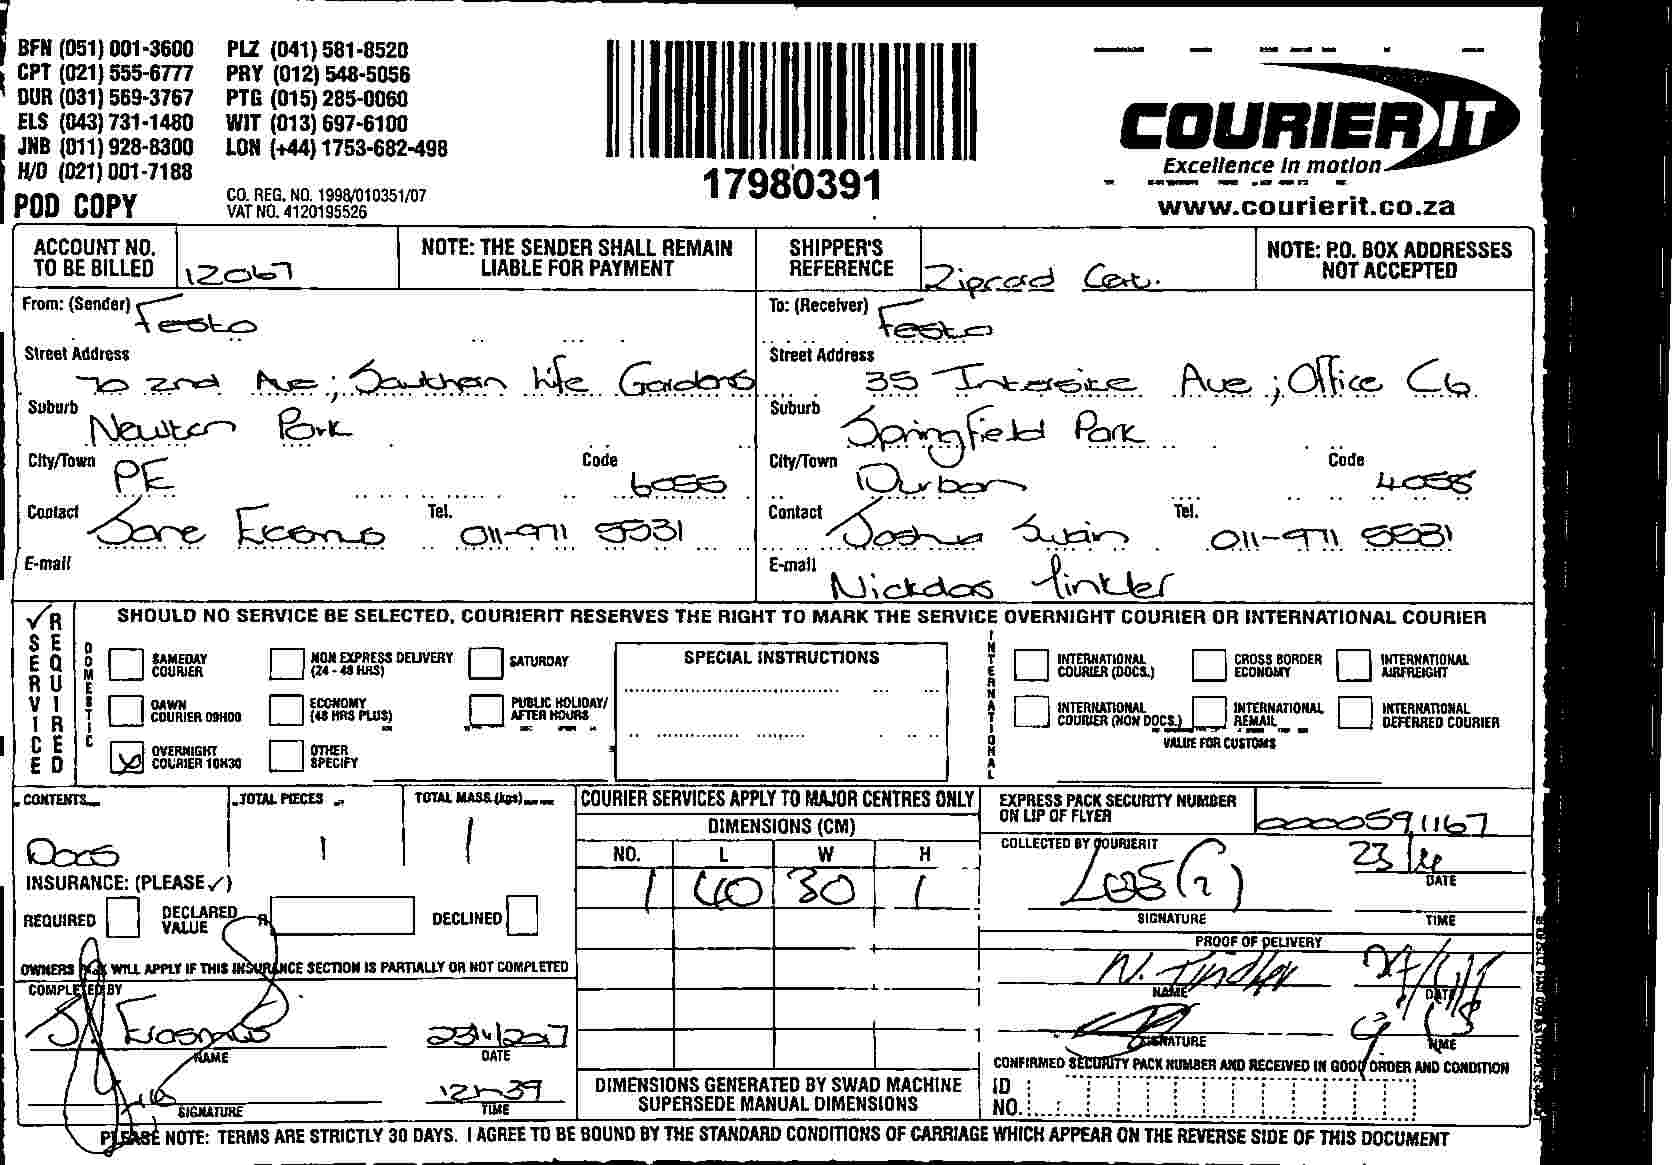 BFN (051) 001-3600 PLZ (041) 581-8520
CPT (021) 555-6777 PRY (012) 548-5056
DUR (031) 569-3767 PTG (015) 285-0060
ELS (043) 731-1480 WIT (013) 697-6100
JNB (011) 928-8300 LON (+44) 1753-682-498
H/O (021) 001-7188
POD COPY
CO. REG. NO. 1998/010351/07
VAT NO. 4120195526
17980391
COURIER IT
Excellence in motion
www.courierit.co.za
ACCOUNT NO. TO BE BILLED 12067
NOTE: THE SENDER SHALL REMAIN LIABLE FOR PAYMENT
SHIPPER'S REFERENCE Ziprad Cert.
NOTE: P.O. BOX ADDRESSES NOT ACCEPTED
From: (Sender) Festo
Street Address 70 2nd Ave; Southern Life Gardens
Suburb Newton Park
City/Town PE Code 6055
Contact Jane Tel. 011-971 5531
E-mail
To: (Receiver) Festo
Street Address 35 Intersite Ave; Office C6
Suburb Springfield Park
City/Town Durban Code 4055
Contact Joshua Swain Tel. 011-971 5531
E-mail Nickolas Tinkler
SERVICE REQUIRED
SHOULD NO SERVICE BE SELECTED, COURIERIT RESERVES THE RIGHT TO MARK THE SERVICE OVERNIGHT COURIER OR INTERNATIONAL COURIER
DOMESTIC
SAMEDAY COURIER
NON EXPRESS DELIVERY (24 - 48 HRS)
SATURDAY
DAWN COURIER 09H00
ECONOMY (48 HRS PLUS)
PUBLIC HOLIDAY/ AFTER HOURS
OVERNIGHT COURIER 10H30
OTHER SPECIFY
SPECIAL INSTRUCTIONS
INTERNATIONAL
INTERNATIONAL COURIER (DOCS.)
CROSS BORDER ECONOMY
INTERNATIONAL AIRFREIGHT
INTERNATIONAL COURIER (NON DOCS.)
INTERNATIONAL REMAIL
INTERNATIONAL DEFERRED COURIER
VALUE FOR CUSTOMS
CONTENTS Docs
TOTAL PIECES 1
TOTAL MASS (kgs) 1
INSURANCE: (PLEASE ✓)
REQUIRED DECLARED VALUE R DECLINED
OWNERS RISK WILL APPLY IF THIS INSURANCE SECTION IS PARTIALLY OR NOT COMPLETED
COMPLETED BY
J. Erasmus
NAME
23/4/2017
DATE
SIGNATURE
12h39
TIME
COURIER SERVICES APPLY TO MAJOR CENTRES ONLY
DIMENSIONS (CM)
NO. L W H
1 40 30 1
DIMENSIONS GENERATED BY SWAD MACHINE SUPERSEDE MANUAL DIMENSIONS
EXPRESS PACK SECURITY NUMBER ON LIP OF FLYER 0000591167
COLLECTED BY COURIERIT
SIGNATURE
23/4
DATE
TIME
PROOF OF DELIVERY
NAME
DATE
SIGNATURE
TIME
CONFIRMED SECURITY PACK NUMBER AND RECEIVED IN GOOD ORDER AND CONDITION
ID NO. :
PLEASE NOTE: TERMS ARE STRICTLY 30 DAYS. I AGREE TO BE BOUND BY THE STANDARD CONDITIONS OF CARRIAGE WHICH APPEAR ON THE REVERSE SIDE OF THIS DOCUMENT